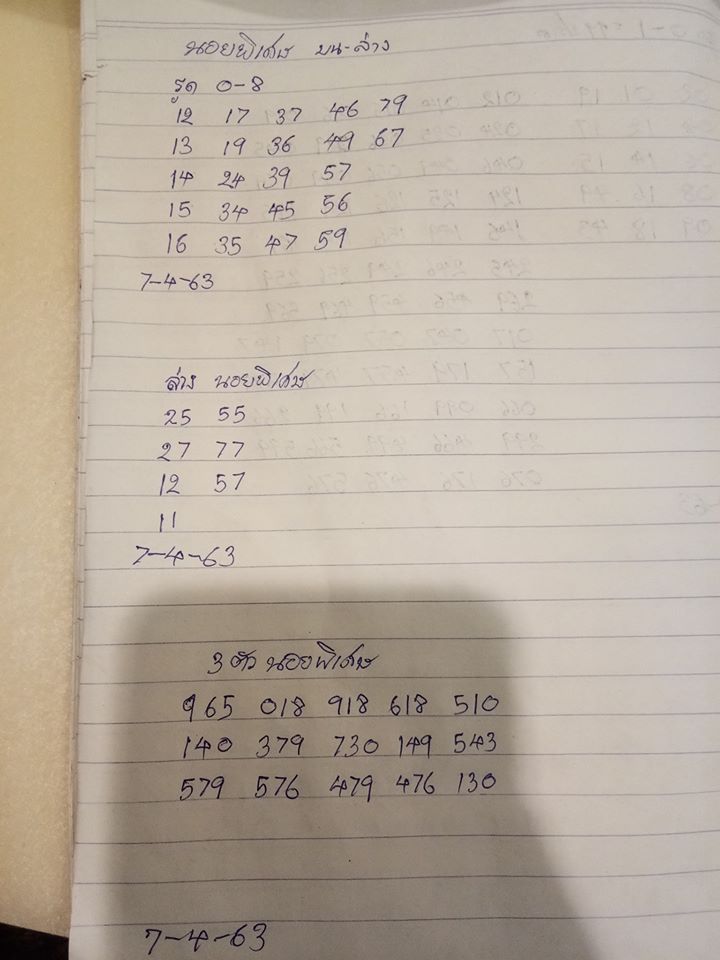 นอยพิเศษ บน-ล่าง
รูด 0-8
12 17 37 46 79
13 19 36 49 67
14 24 39 57
15 34 45 56
16 35 47 59
7-4-63
ล่าง นอยพิเศษ
25 55
27 77
12 57
11
7-4-63
3 ตัว นอยพิเศษ
965 018 918 618 510
140 379 730 149 543
579 576 479 476 130
7-4-63